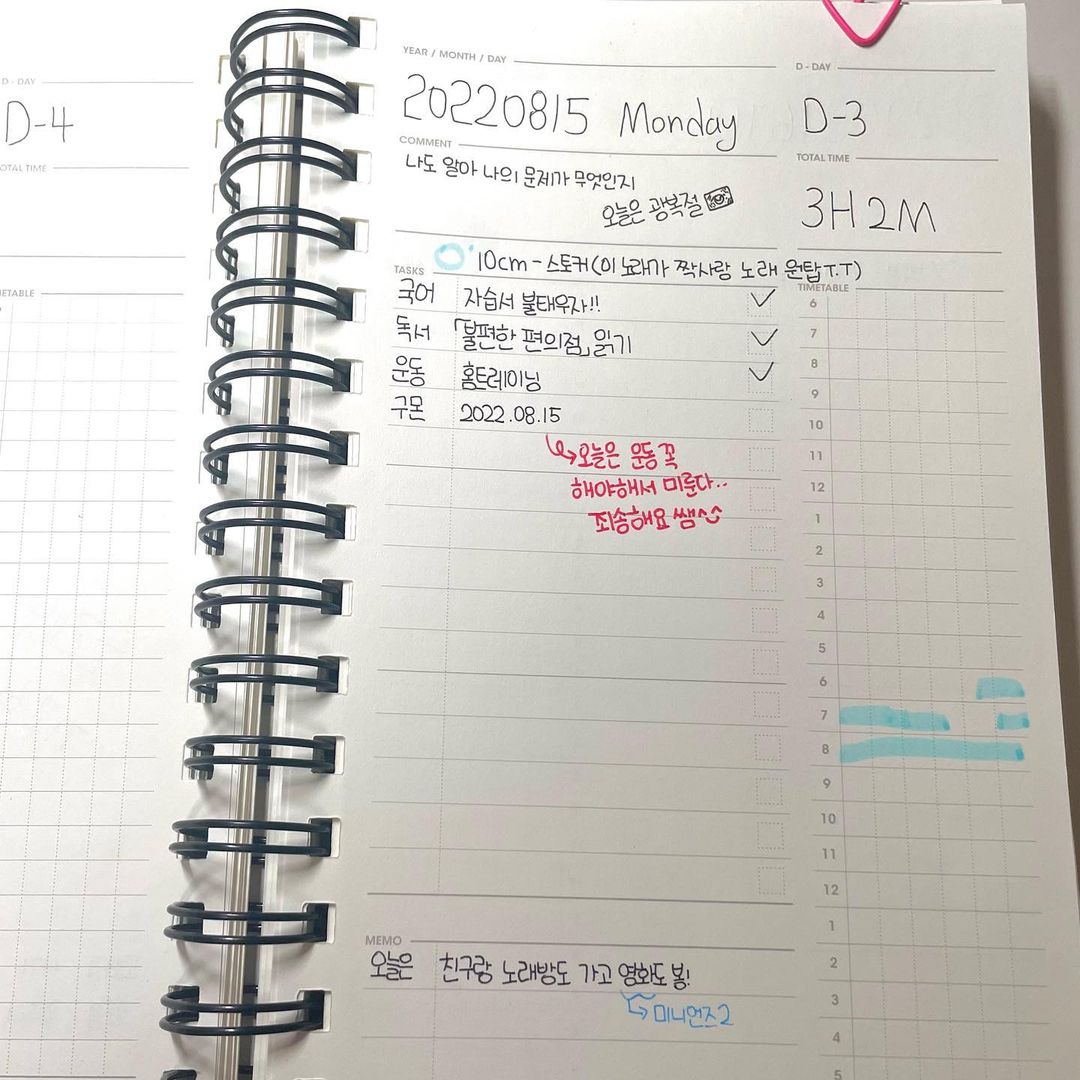 D - DAY
D-4
OTAL TIME
METABLE
YEAR / MONTH / DAY
20220815 Monday
D - DAY
D-3
COMMENT
나도 알아 나의 문제가 무엇인지
오늘은 광복절
TOTAL TIME
3H 2M
10cm - 스토커(이 노래가 짝사랑 노래 원탑T.T)
TASKS
국어 자습서 불태우자!!
독서 「불편한 편의점」 읽기
운동 홈트레이닝
구몬 2022.08.15
↳오늘은 운동 꼭
해야해서 미룬다..
죄송해요 쌤^^
TIMETABLE
6
7
8
9
10
11
12
1
2
3
4
5
6
7
8
9
10
11
12
1
2
3
4
5
MEMO
오늘은 친구랑 노래방도 가고 영화도 봄!
↳미니언즈2